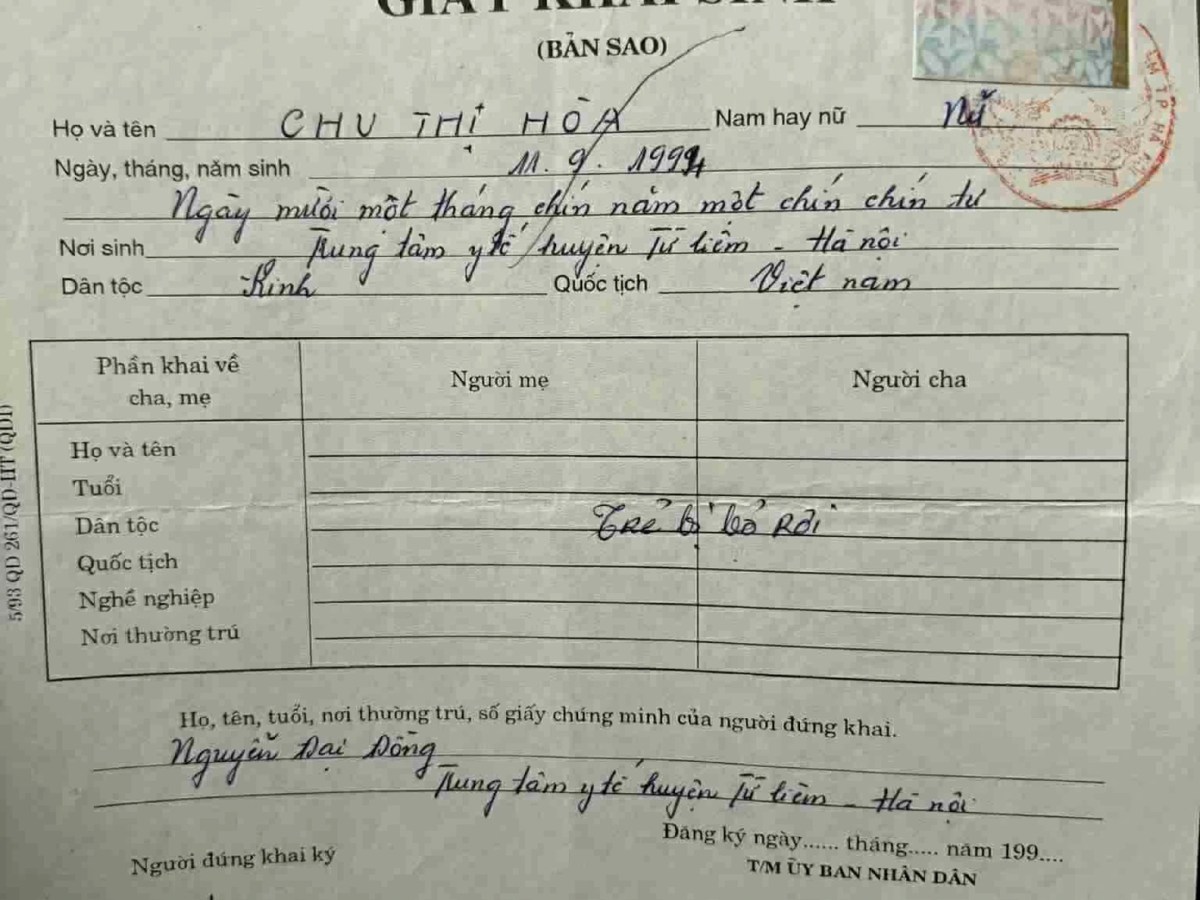 GIẤY KHAI SINH
(BẢN SAO)
Họ và tên CHU THỊ HÒA Nam hay nữ Nữ
Ngày, tháng, năm sinh 11. 9. 1994
Ngày mười một tháng chín năm một chín chín tư
Nơi sinh Trung tâm y tế huyện Từ liêm - Hà nội
Dân tộc Kinh Quốc tịch Việt nam
Phần khai về cha, mẹ Người mẹ Người cha
Họ và tên
Tuổi
Dân tộc Trẻ bị bỏ Rơi
Quốc tịch
Nghề nghiệp
Nơi thường trú
Họ, tên, tuổi, nơi thường trú, số giấy chứng minh của người đứng khai.
Nguyễn Đại Đồng
Trung tâm y tế huyện Từ liêm - Hà nội
Đăng ký ngày...... tháng..... năm 199....
Người đúng khai ký
T/M ỦY BAN NHÂN DÂN
5/93 QD 261/QD-HT (QD1)